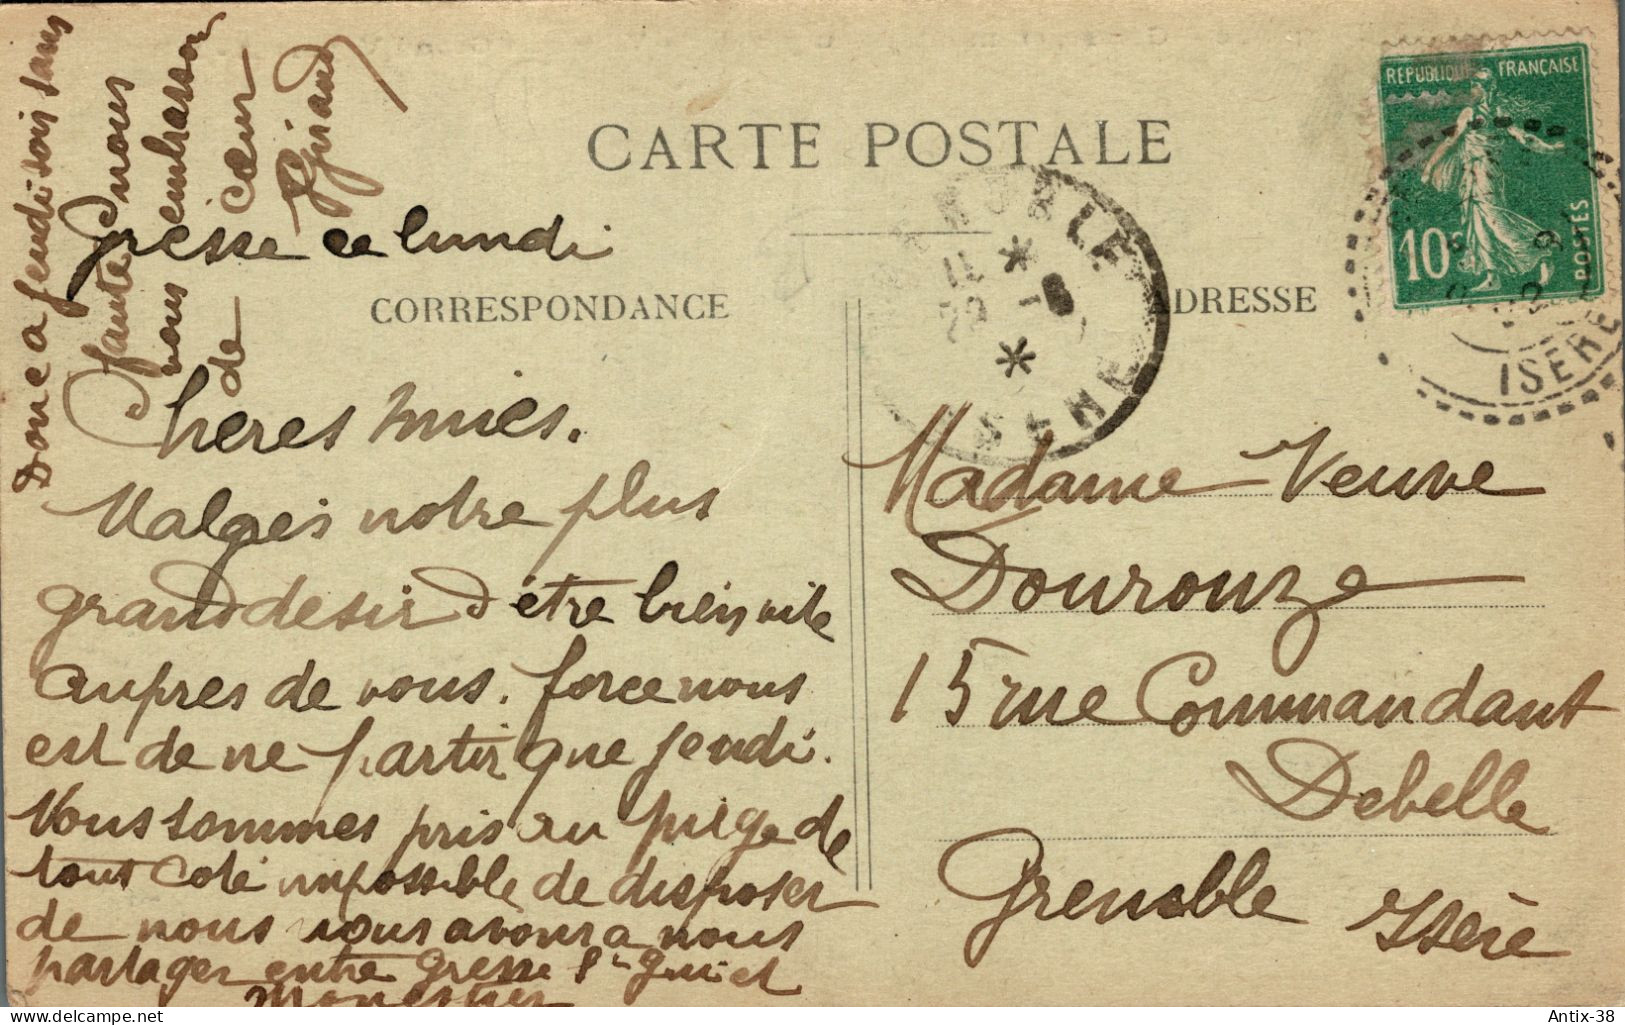 CARTE POSTALE
CORRESPONDANCE
ADRESSE
REPUBLIQUE FRANÇAISE
10c
POSTES
GRENOBLE
ISERE
ISERE
Gresse ce lundi
Cheres Amies.
Malgrés notre plus
grand desir d'être bien vite
aupres de vous. force nous
est de ne partir que jeudi.
Nous sommes pris au piege de
tout coté impossible de disposer
de nous nous avons a nous
partager entre Gresse St Guiet
Monestier
Donc a jeudi soir sans
faute nous
vous embrasson
de cœur
Madame Veuve
Dourouze
15 rue Commandant
Debelle
Grenoble Isère
delcampe.net
Antix-38